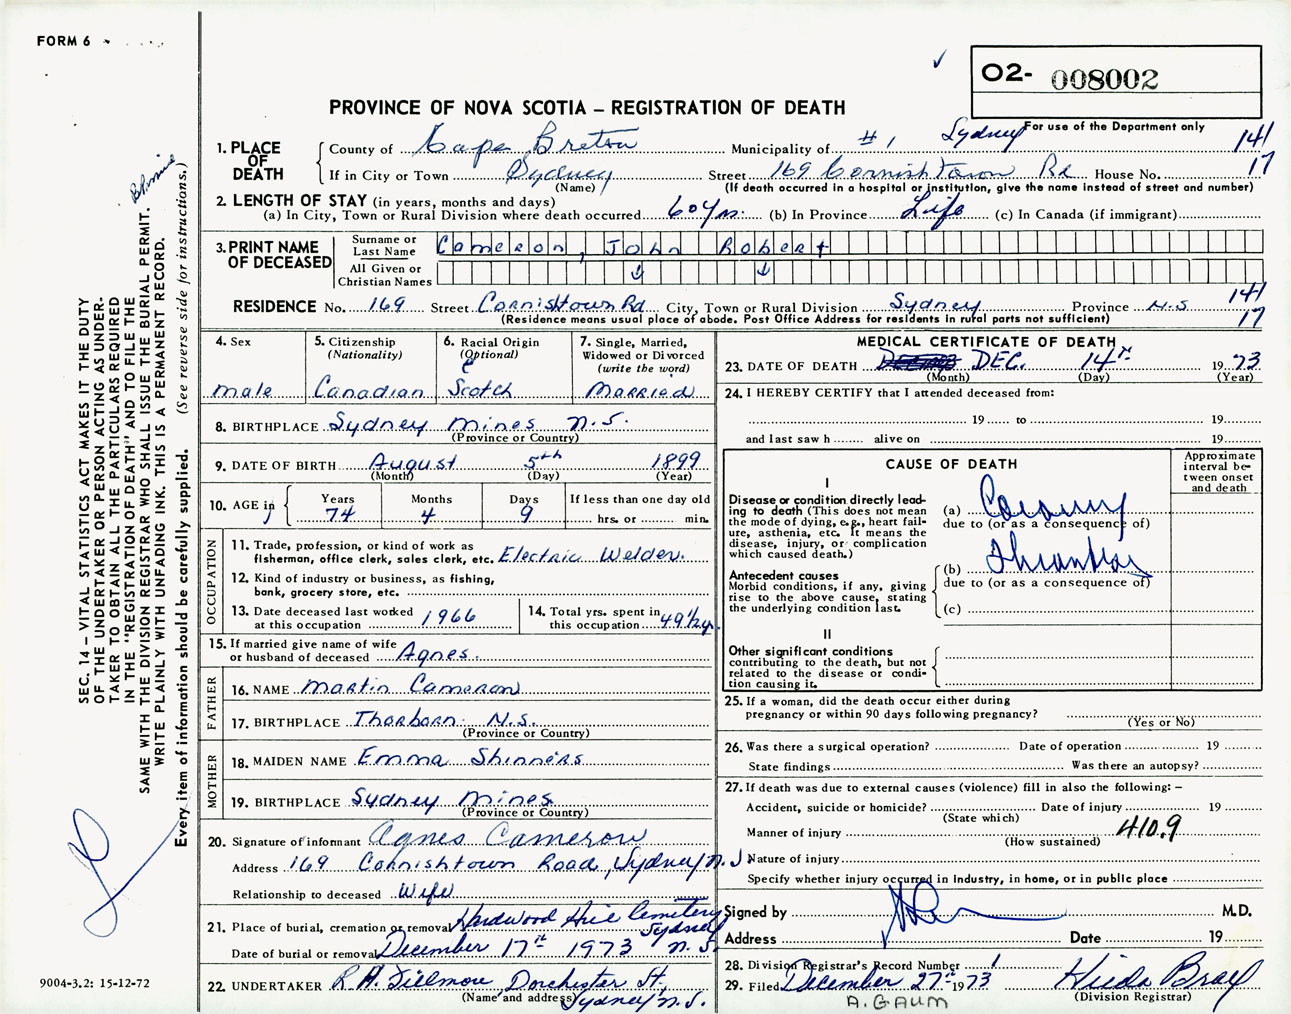 FORM 6
O2- 008002
PROVINCE OF NOVA SCOTIA – REGISTRATION OF DEATH
For use of the Department only
1. PLACE OF DEATH
County of Cape Breton Municipality of #1 Sydney 141
If in City or Town Sydney Street 169 Cornishtown Rd House No. 17
(Name) (If death occurred in a hospital or institution, give the name instead of street and number)
2. LENGTH OF STAY (in years, months and days)
(a) In City, Town or Rural Division where death occurred 60 yrs. (b) In Province Life (c) In Canada (if immigrant)
3. PRINT NAME OF DECEASED
Surname or Last Name Cameron, John Robert
All Given or Christian Names
RESIDENCE No. 169 Street Cornishtown Rd City, Town or Rural Division Sydney Province N.S 141
(Residence means usual place of abode. Post Office Address for residents in rural parts not sufficient) 17
4. Sex male
5. Citizenship (Nationality) Canadian
6. Racial Origin (Optional) Scotch
7. Single, Married, Widowed or Divorced (write the word) Married
8. BIRTHPLACE Sydney Mines N.S.
(Province or Country)
9. DATE OF BIRTH August 5th 1899
(Month) (Day) (Year)
10. AGE in Years 74 Months 4 Days 9 If less than one day old hrs. or min.
OCCUPATION
11. Trade, profession, or kind of work as fisherman, office clerk, sales clerk, etc. Electric Welder.
12. Kind of industry or business, as fishing, bank, grocery store, etc.
13. Date deceased last worked at this occupation 1966
14. Total yrs. spent in this occupation 49½ yr.
15. If married give name of wife or husband of deceased Agnes.
FATHER
16. NAME Martin Cameron
17. BIRTHPLACE Thorborn N.S.
(Province or Country)
MOTHER
18. MAIDEN NAME Emma Shinners
19. BIRTHPLACE Sydney Mines
(Province or Country)
20. Signature of informant Agnes Cameron
Address 169 Cornishtown Road, Sydney N.S.
Relationship to deceased Wife
21. Place of burial, cremation or removal Hardwood Hill Cemetery Sydney
Date of burial or removal December 17th 1973 N.S.
22. UNDERTAKER R.A. Fillmore, Dorchester St.
(Name and address) Sydney N.S.
MEDICAL CERTIFICATE OF DEATH
23. DATE OF DEATH DEC. 14TH 1973
(Month) (Day) (Year)
24. I HEREBY CERTIFY that I attended deceased from:
19 to 19
and last saw h alive on 19
CAUSE OF DEATH
Approximate interval between onset and death
I
Disease or condition directly leading to death (This does not mean the mode of dying, e.g., heart failure, asthenia, etc. It means the disease, injury, or complication which caused death.)
(a) Coronary
due to (or as a consequence of)
Antecedent causes
Morbid conditions, if any, giving rise to the above cause, stating the underlying condition last.
(b) Thrombosis
due to (or as a consequence of)
(c)
II
Other significant conditions
contributing to the death, but not related to the disease or condition causing it.
25. If a woman, did the death occur either during pregnancy or within 90 days following pregnancy?
(Yes or No)
26. Was there a surgical operation? Date of operation 19
State findings Was there an autopsy?
27. If death was due to external causes (violence) fill in also the following: –
Accident, suicide or homicide? Date of injury 19
(State which)
Manner of injury 410.9
(How sustained)
Nature of injury
Specify whether injury occurred in industry, in home, or in public place
Signed by M.D.
Address Date 19
28. Division Registrar's Record Number
29. Filed December 27th 1973 Hilda Bray
(Division Registrar)
A. GAUM
SEC. 14 – VITAL STATISTICS ACT MAKES IT THE DUTY
OF THE UNDERTAKER OR PERSON ACTING AS UNDER-
TAKER TO OBTAIN ALL THE PARTICULARS REQUIRED
IN THE "REGISTRATION OF DEATH" AND TO FILE THE
SAME WITH THE DIVISION REGISTRAR WHO SHALL ISSUE THE BURIAL PERMIT.
WRITE PLAINLY WITH UNFADING INK. THIS IS A PERMANENT RECORD.
Every item of information should be carefully supplied. (See reverse side for instructions.)
9004-3.2: 15-12-72